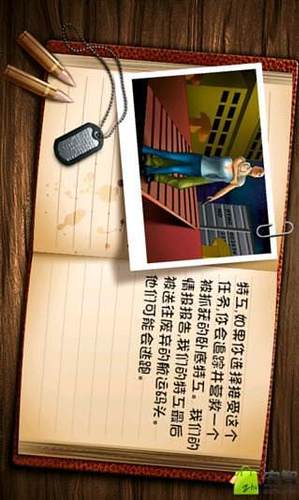 特工,如果你选择接受这个
任务,你会追踪并营救一个
被抓获的卧底特工。我们的
情报报告,我们的特工最后
被送往废弃的航运码头。
他们可能会逃跑。